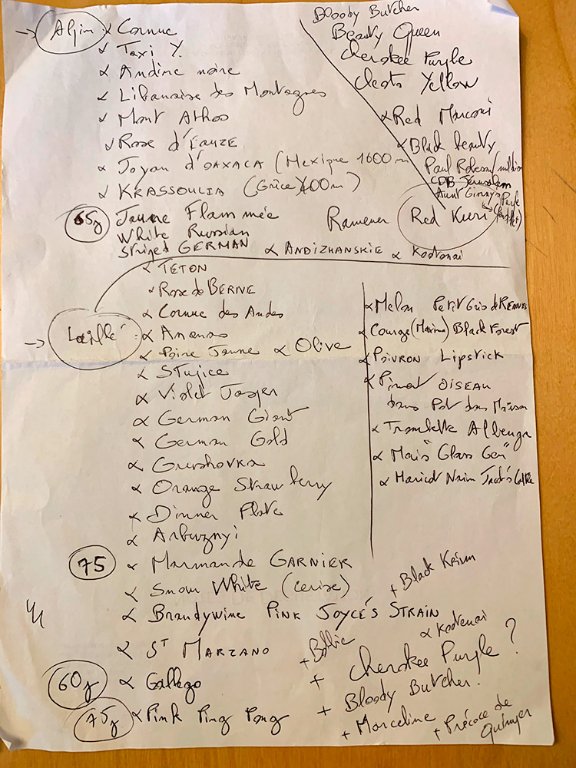 → Alpin
α Cornue
α Taxi
α Andine noire
α Libanaise des Montagnes
α Mont Athos
α Rose d'Eauze
α Joyau d'OAXACA (Mexique 1600 m
α KRASSOULIA (Grèce
65j Jaune Flammée
White Russian
Striped GERMAN
α ANDIZHANSKIE α Kootenai
Bloody Butcher
Beauty Queen
Cherokee Purple
Yellow
α Red Marconi
α Black beauty
Paul Robeson
Jerusalem
Aunt Ginny's
Ramener
Red Kuri
→
α TETON
α Rose de BERNE
α Cornue des Andes
α Ananas
α Poire Jaune α Olive
α Stupice
α Violet Jasper
α German Giant
α German Gold
α Grushovka
α Orange Strawberry
α Dinner Plate
α Arbuznyi
75 α Marmande GARNIER
α Snow White (cerise)
α Brandywine PINK JOYCE'S STRAIN
α ST MARZANO
60j α Gallego
75j α Pink Ping Pong
α Melon Petit Gris de RENNES
α Courge (Marina) Black Forest
α POIVRON LIPSTICK
α Piment OISEAU
dans Pot dans Maison
α Trombette Albenga
α Maïs "Glass Gem"
α Haricot Nain
+ Black Krim
α Kootenai
+ Cherokee Purple ?
+ Bloody Butcher.
+ Marceline
+ Précoce de Quimper